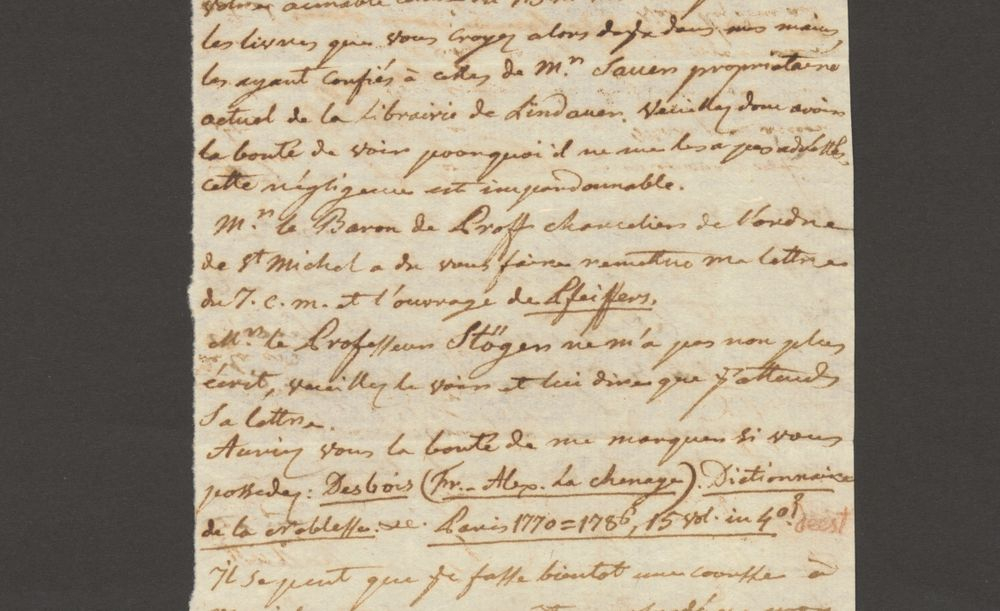 les livres que vous croyez alors deja dans mes mains,
les ayant confiés à celles de M.r Sauer propriétaire
actuel de la Librairie de Lindauer. Veuillez donc avoir
la bonté de voir pourquoi il ne me les a pas adressés,
cette négligence est impardonnable.
M.r le Baron de Proff chancelier de l'ordre
de St Michel a du vous faire remettre ma lettre
du 7. c. m. et l'ouvrage de Pfeiffer.
M.r le Professeur Stöger ne m'a pas non plus
écrit, veuillez le voir et lui dire que j'attends
Sa lettre.
Auriez vous la bonté de me marquer si vous
possedez: Desbois (Fr. Alex. La chenaye). Dictionnaire
de la Noblesse. &c. Paris 1770=1786, 15 vol. in 4o? deest
Il se peut que je fasse bientot une course à